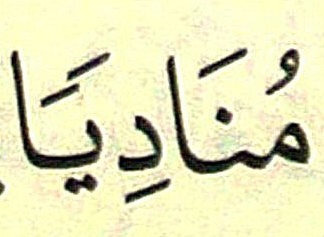 مُنَادِيَا